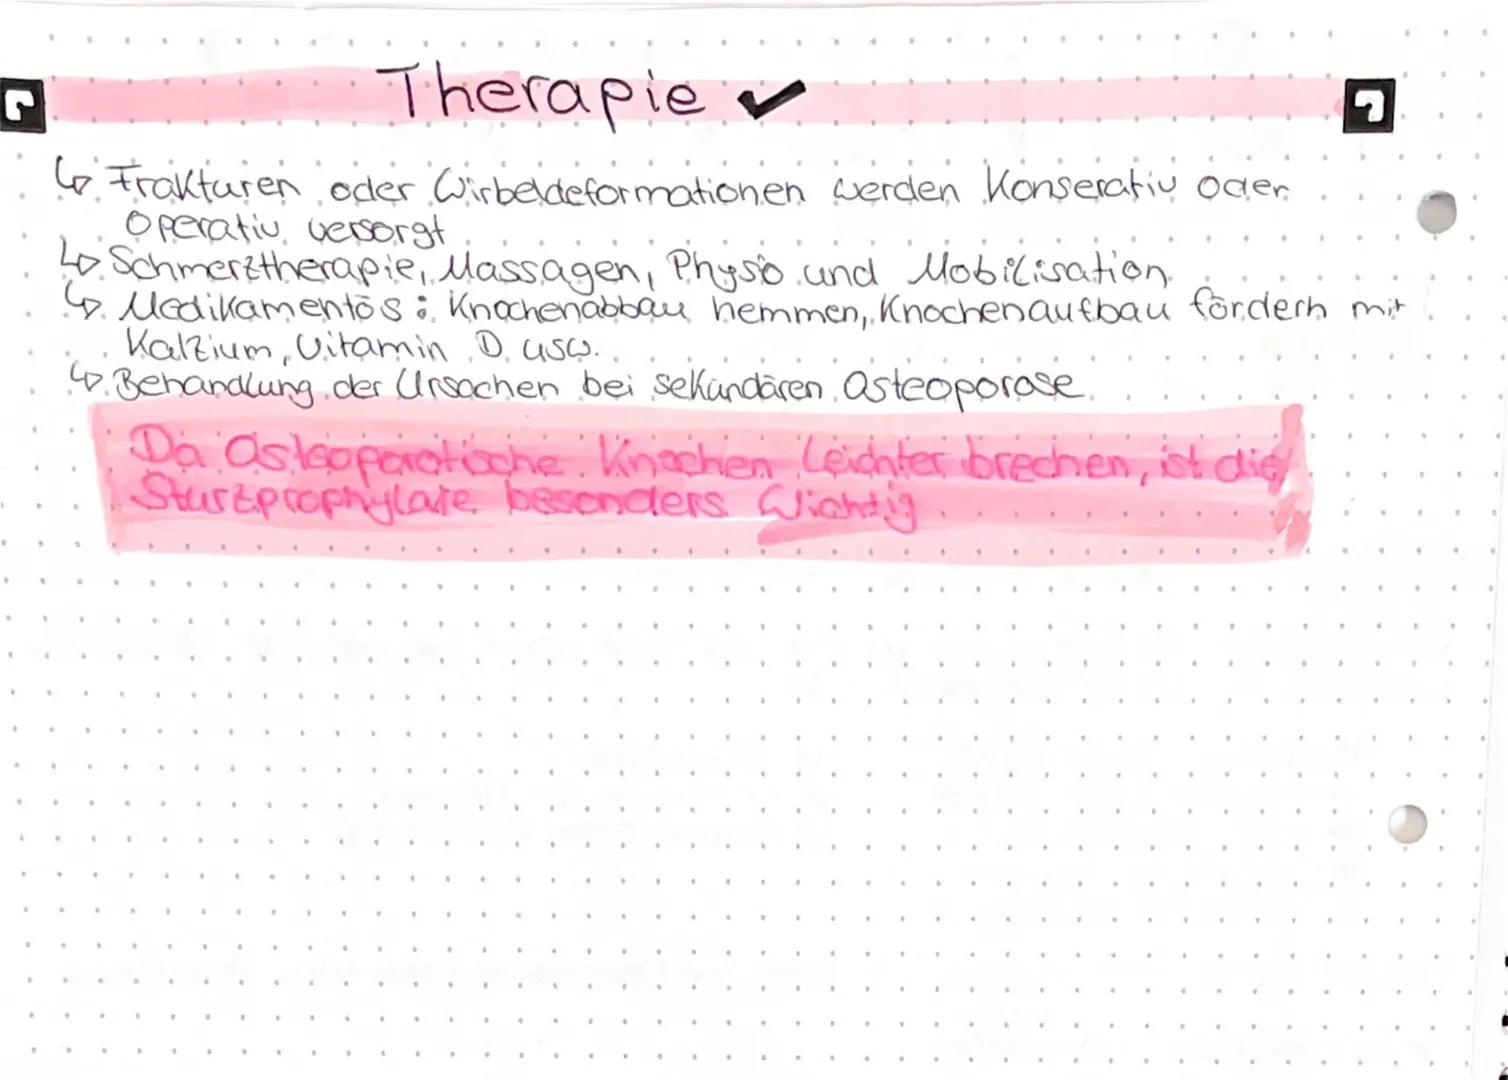 Therapie ✓
↳ Frakturen oder Wirbeldeformationen werden Konserativ oder
Operativ versorgt
↳ Schmerztherapie, Massagen, Physio und Mobilisation
↳ Medikamentös: Knochenabbau hemmen, Knochenaufbau fördern mit
Kalzium, Vitamin D usw.
↳ Behandlung der Ursachen bei sekundären Osteoporose
Da Osteoporotische Knochen Leichter brechen, ist die
Sturzprophylaxe besonders Wichtig